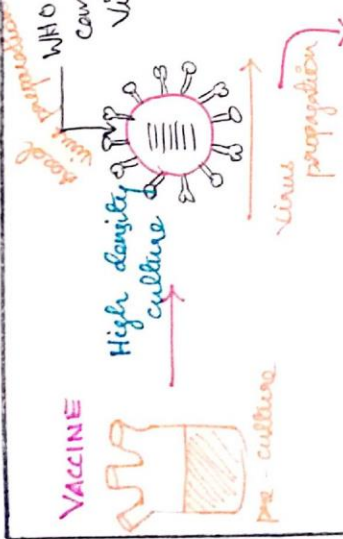 VACCINE
pre-culture
High density
culture
seed
virus preparation
WHO
can
Vi
virus
propagation